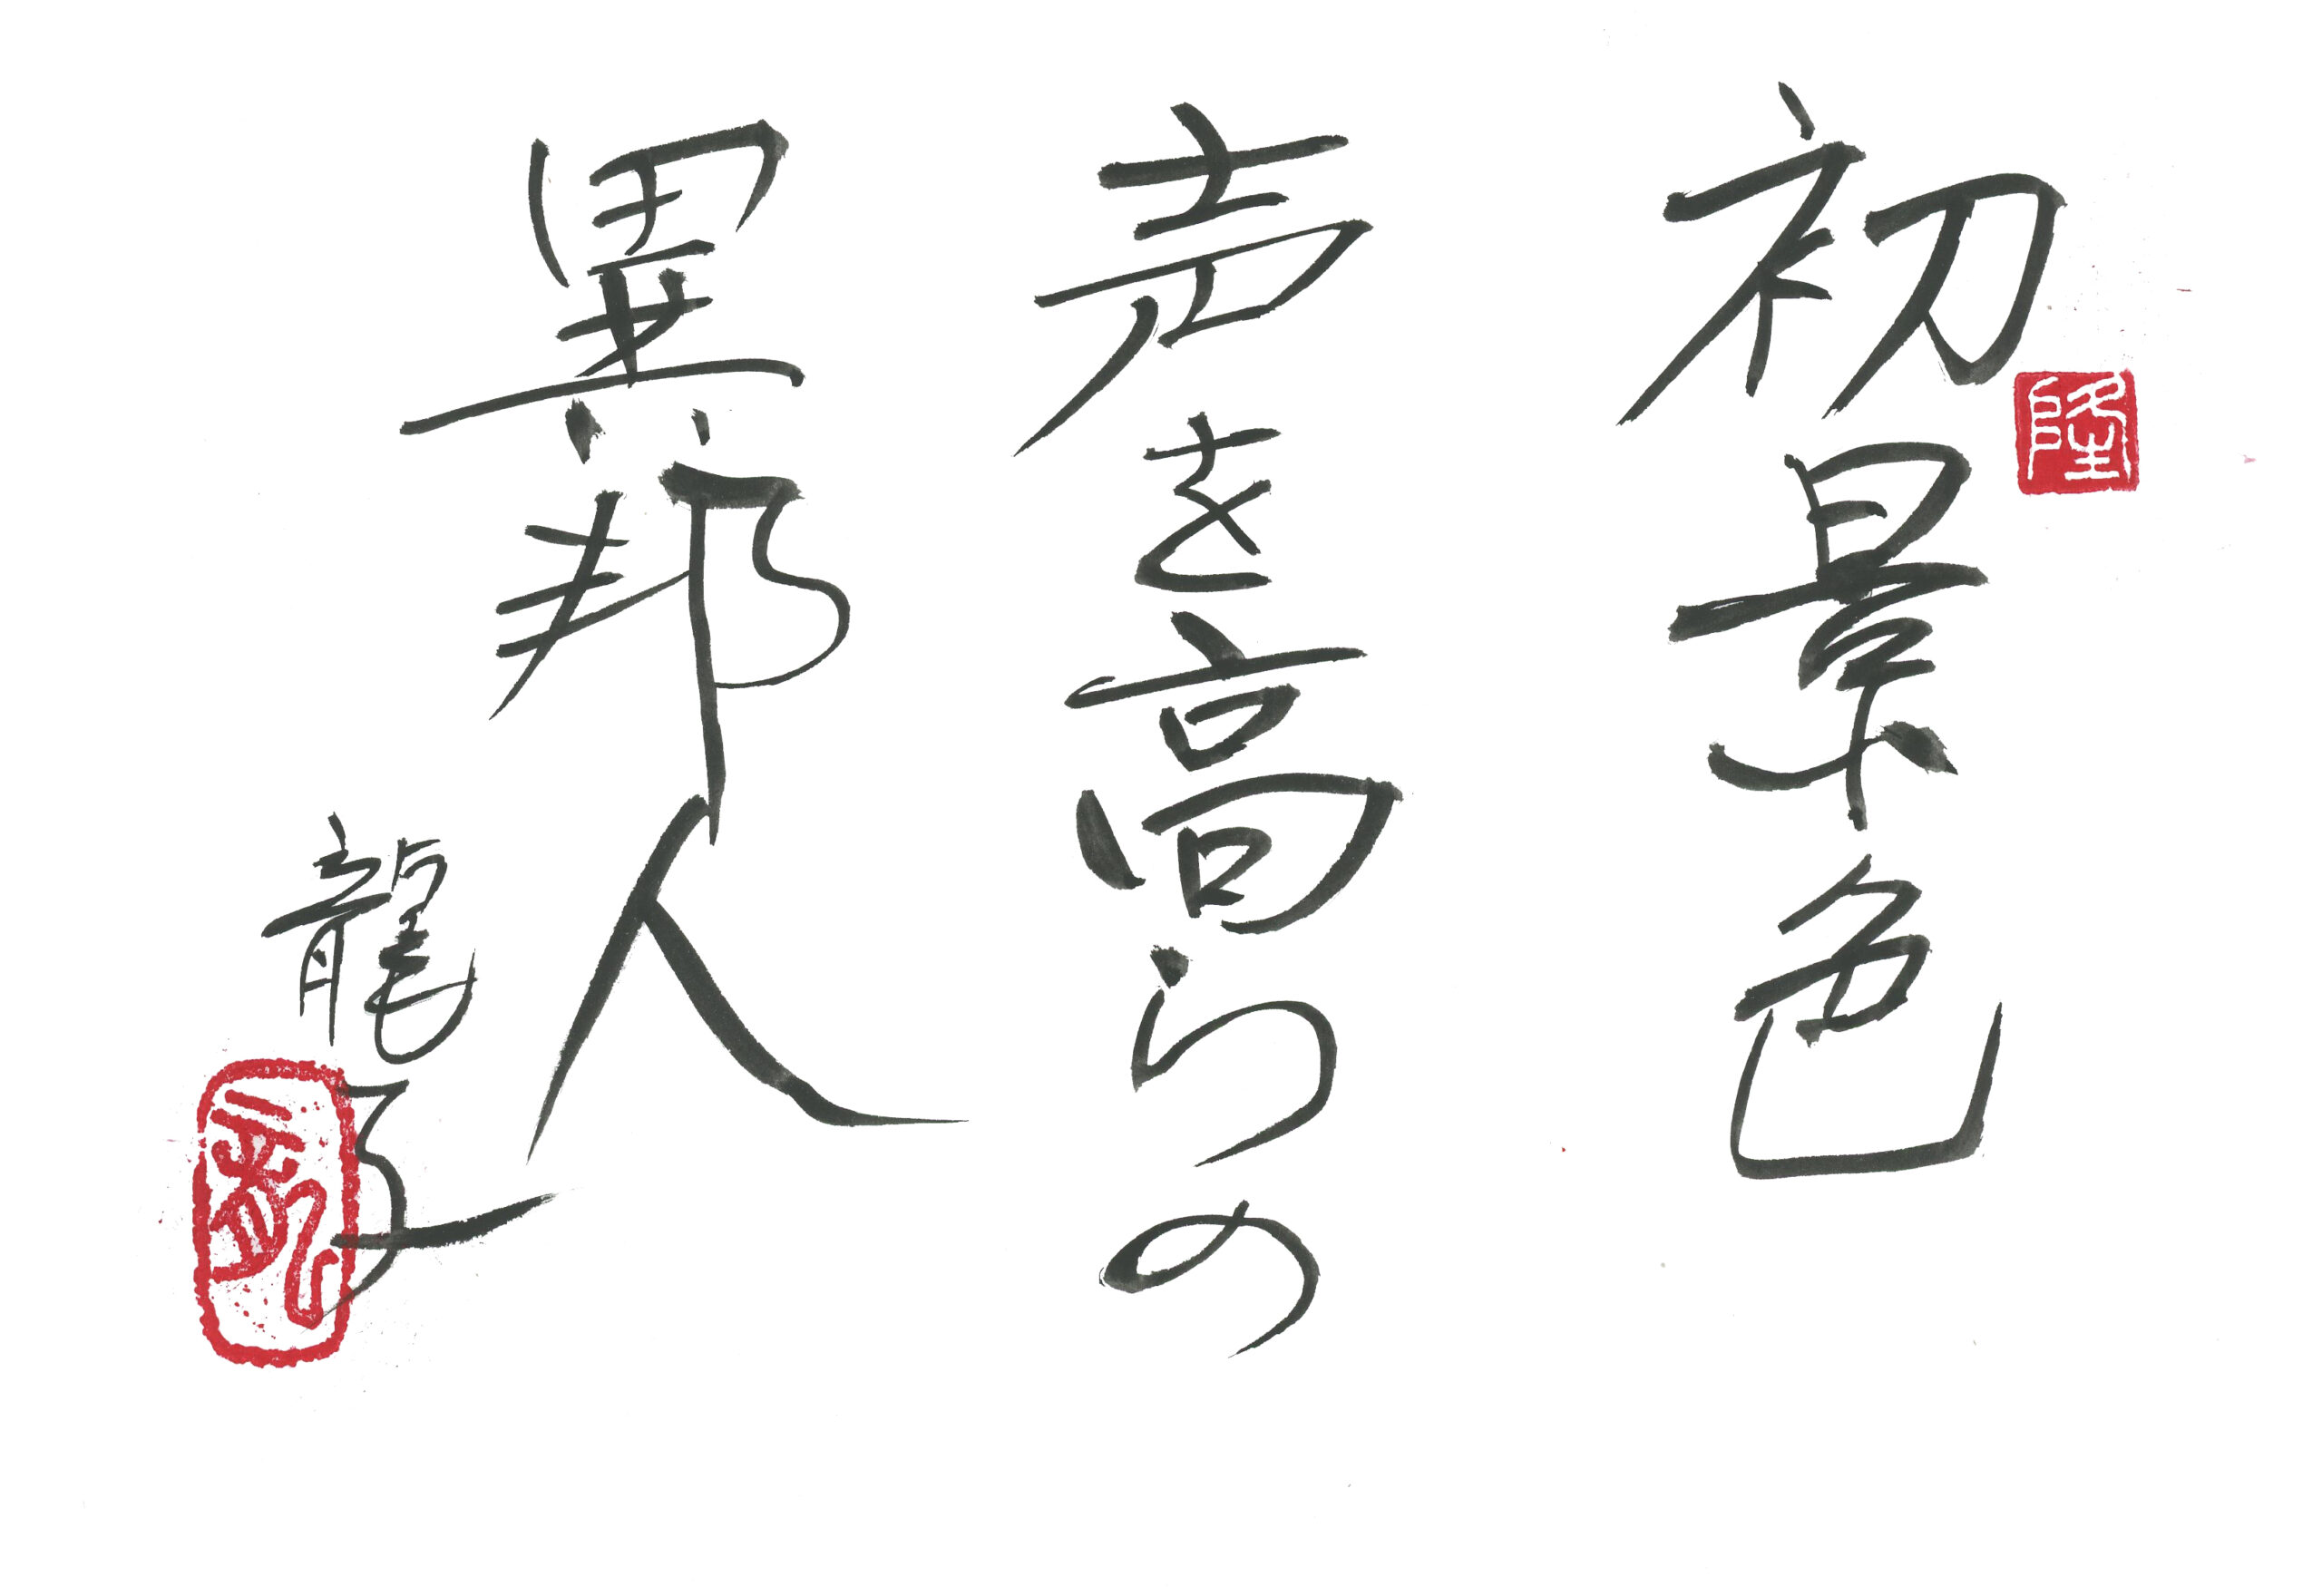 初景色
声を高らの
異邦人
龍子
隆